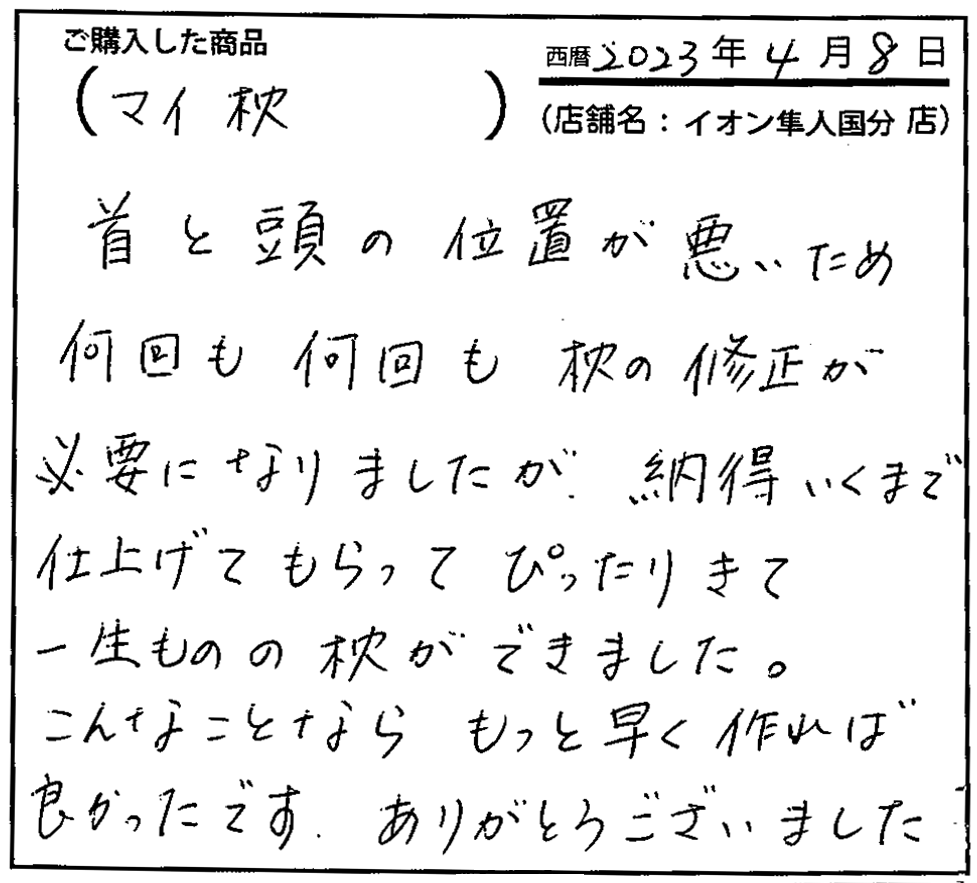 ご購入した商品
西暦2023年4月8日
(マイ枕)
(店舗名：イオン隼人国分店)
首と頭の位置が悪いため
何回も何回も枕の修正が
必要になりましたが、納得いくまで
仕上げてもらってぴったりきて
一生ものの枕ができました。
こんなことならもっと早く作れば
良かったです。ありがとうございました